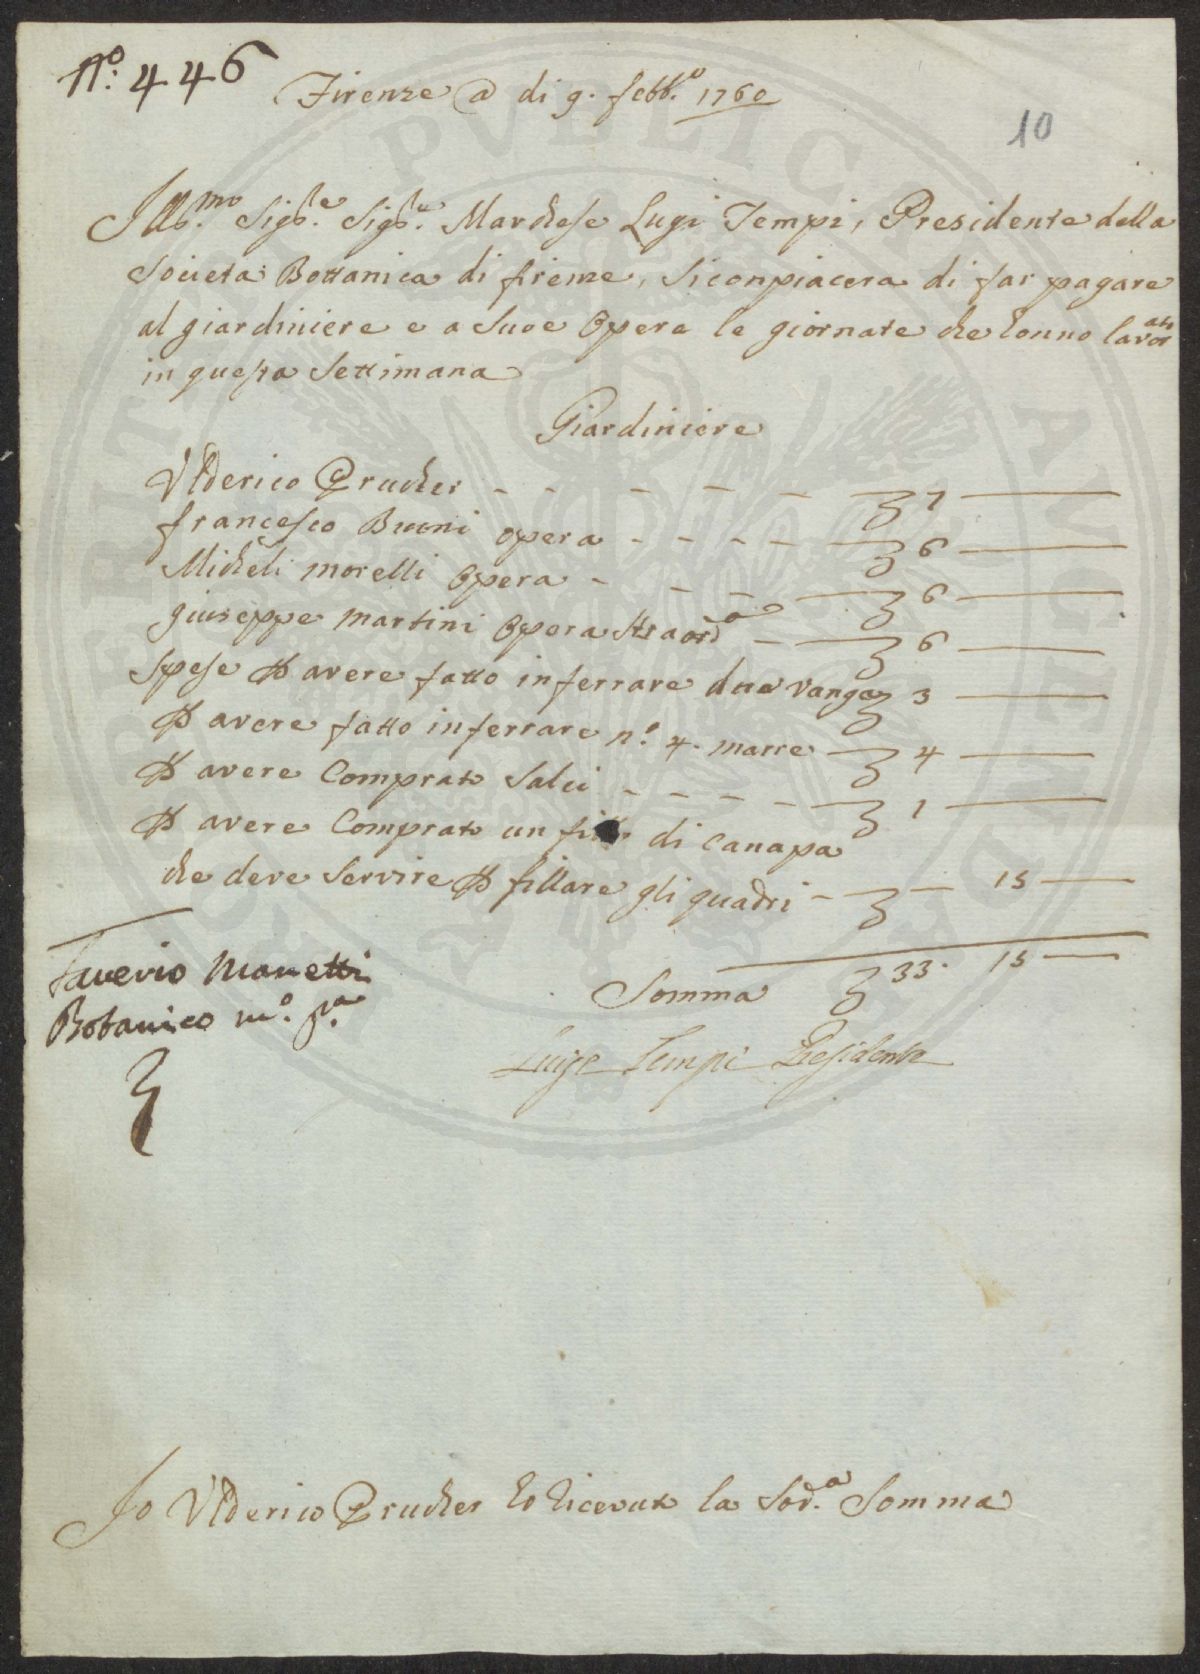 Nº. 446
Firenze @ di 9. febb.º 1760
10
Ill.mo Sig.re Sig.re Marchese Lugi Tempi, Presidente della
Società Bottanica di firenze, Si conpiacera di far pagare
al giardiniere e a Suoe Opere le giornate che honno lavorato
in questa Settimana
Giardiniere
Ulderico Prucher - - - - - 7 —
francesco Bueni opera - - - - 6 —
Micheli morelli opera - - - - 6 —
giuseppe martini opera straord.a — 6 —
Spese P avere fatto inferrare due vange 3 —
P avere fatto inferrare n.º 4. marre — 4 —
P avere Comprato Salci - - - - 1 —
P avere Comprato un di canapa
che deve Servire P fillare gli quadri - — 15 —
Somma 33. 15 —
Saverio Manetti
Botanico m.º p.a
Luigi Tempi Presidente
PVBLICA
Io Ulderico Prucher ho Ricevuto la Sod.a Somma